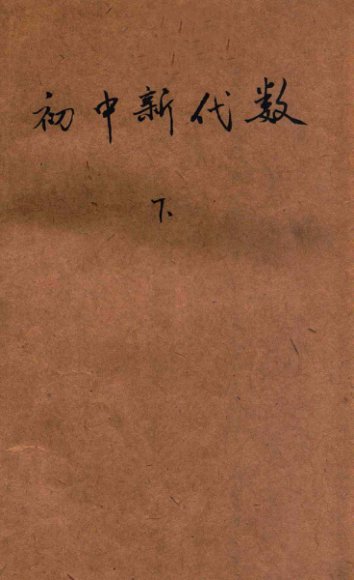 初中新代数
下